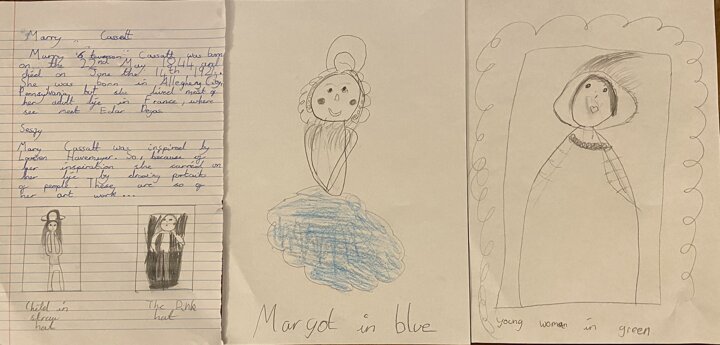 Marry Cassatt
Murry Cassatt was born
on the 22nd May 1844 and
died on June the 14th 1926.
She was born in Allegheny City,
Pennsylvania, but she lived most of
her adult life in France, where
see meet Edar Degas
Mary Cassatt was inspired by
Havemeyer. So, because of
her inspiration she carried on
her life by drawing portraits
of people. These are so of
her art work...
Child in
straw
hat
The Pink
hat
Margot in blue
young woman in green